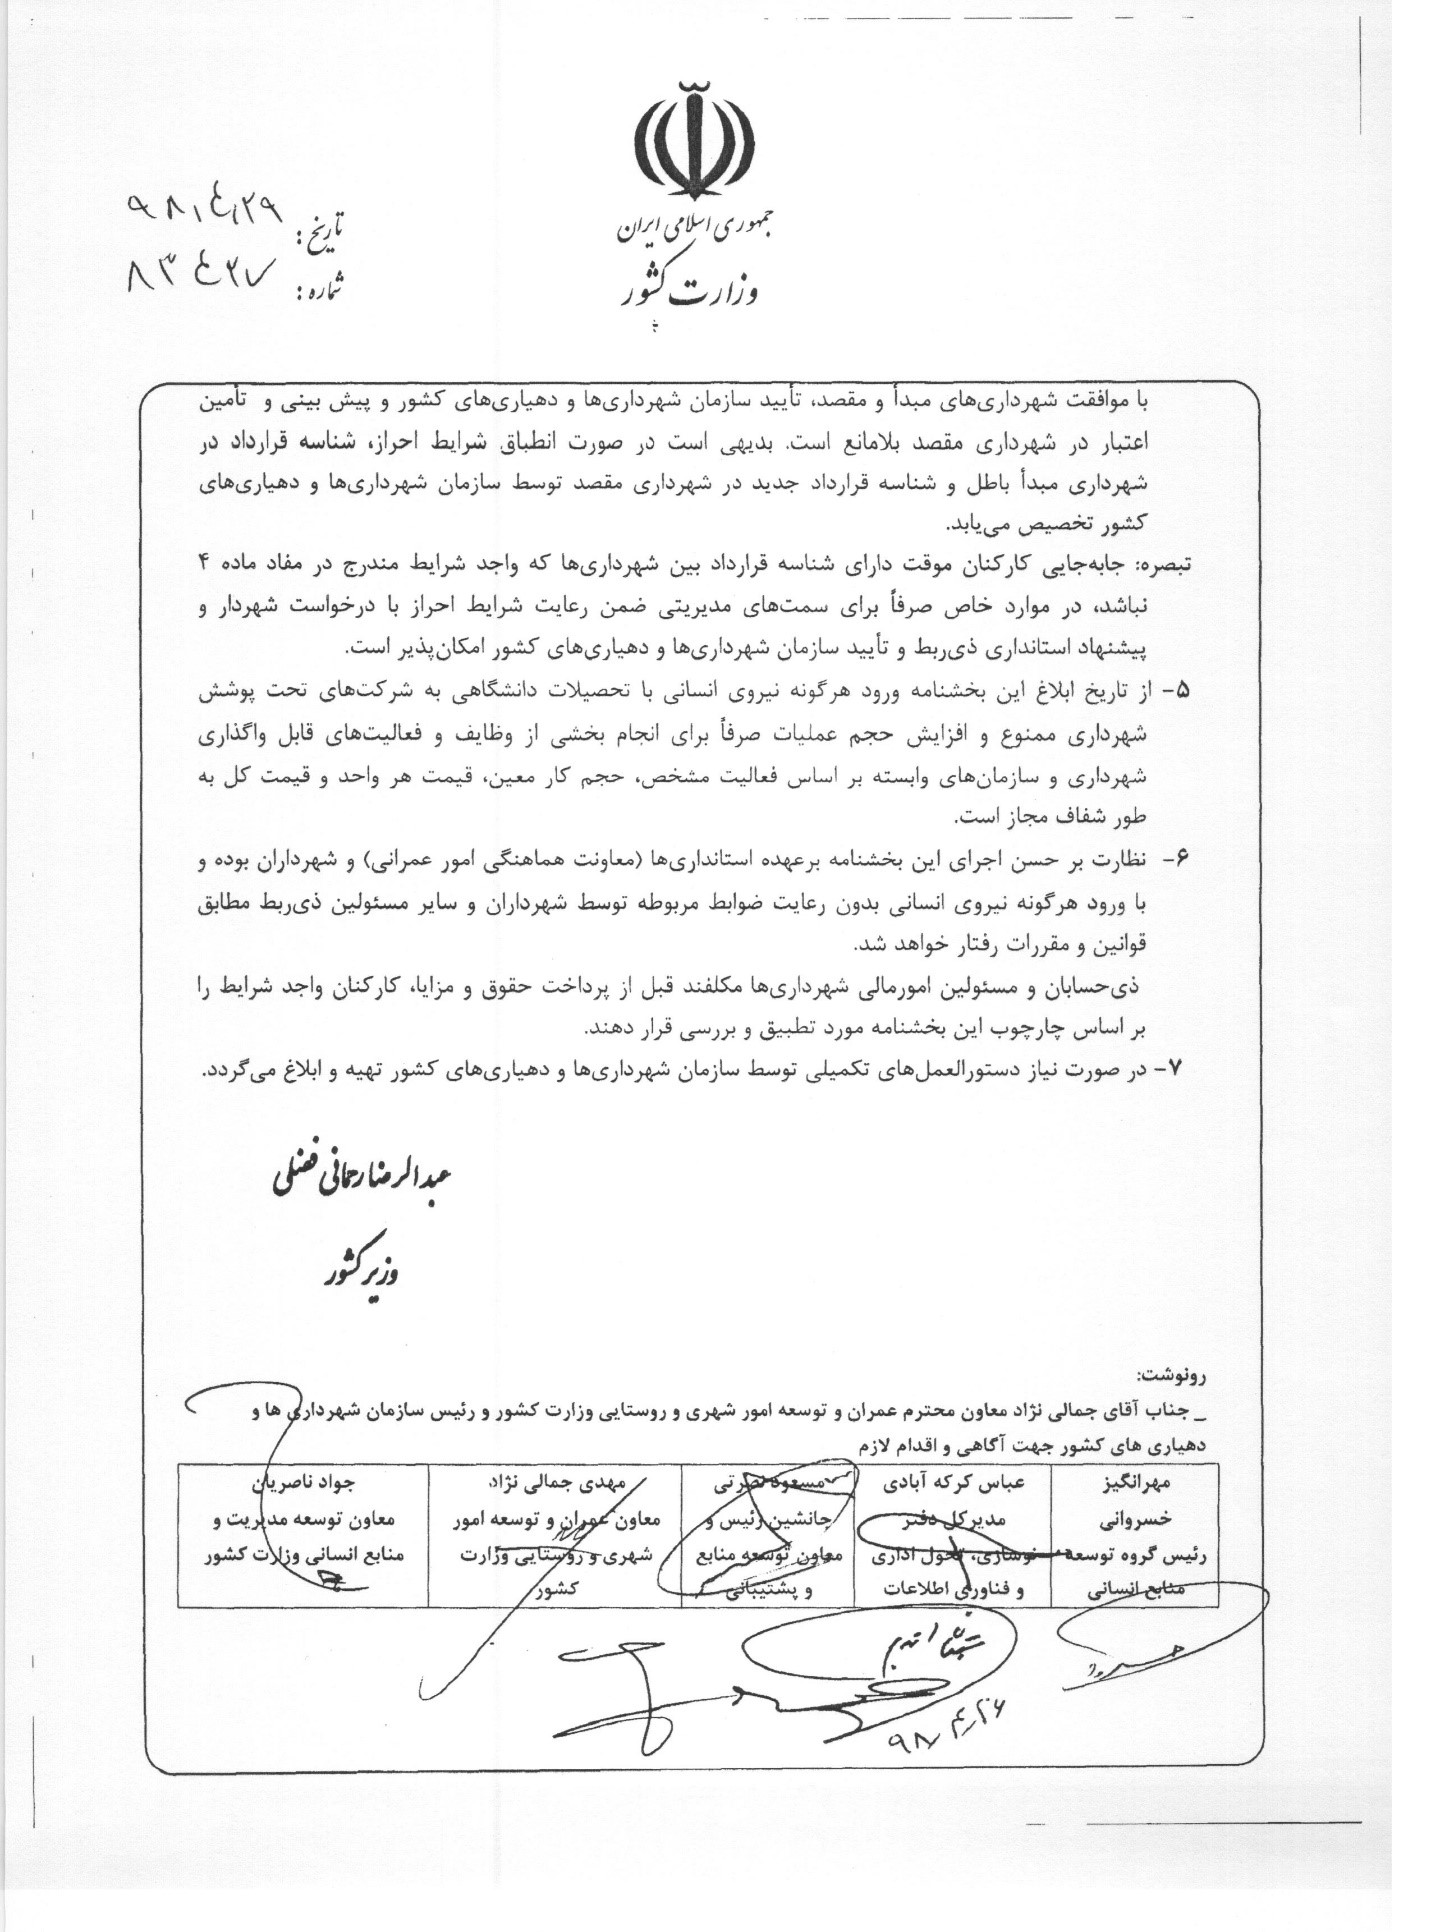 جمهوری اسلامی ایران
وزارت کشور
تاریخ: ۹۸/٤/۲۹
شماره: ۸۳٤۲۷
با موافقت شهرداری‌های مبدأ و مقصد، تأیید سازمان شهرداری‌ها و دهیاری‌های کشور و پیش بینی و تأمین
اعتبار در شهرداری مقصد بلامانع است. بدیهی است در صورت انطباق شرایط احراز، شناسه قرارداد در
شهرداری مبدأ باطل و شناسه قرارداد جدید در شهرداری مقصد توسط سازمان شهرداری‌ها و دهیاری‌های
کشور تخصیص می‌یابد.
تبصره: جابه‌جایی کارکنان موقت دارای شناسه قرارداد بین شهرداری‌ها که واجد شرایط مندرج در مفاد ماده ۴
نباشد، در موارد خاص صرفاً برای سمت‌های مدیریتی ضمن رعایت شرایط احراز با درخواست شهردار و
پیشنهاد استانداری ذی‌ربط و تأیید سازمان شهرداری‌ها و دهیاری‌های کشور امکان‌پذیر است.
۵- از تاریخ ابلاغ این بخشنامه ورود هرگونه نیروی انسانی با تحصیلات دانشگاهی به شرکت‌های تحت پوشش
شهرداری ممنوع و افزایش حجم عملیات صرفاً برای انجام بخشی از وظایف و فعالیت‌های قابل واگذاری
شهرداری و سازمان‌های وابسته بر اساس فعالیت مشخص، حجم کار معین، قیمت هر واحد و قیمت کل به
طور شفاف مجاز است.
۶- نظارت بر حسن اجرای این بخشنامه برعهده استانداری‌ها (معاونت هماهنگی امور عمرانی) و شهرداران بوده و
با ورود هرگونه نیروی انسانی بدون رعایت ضوابط مربوطه توسط شهرداران و سایر مسئولین ذی‌ربط مطابق
قوانین و مقررات رفتار خواهد شد.
ذی‌حسابان و مسئولین امورمالی شهرداری‌ها مکلفند قبل از پرداخت حقوق و مزایا، کارکنان واجد شرایط را
بر اساس چارچوب این بخشنامه مورد تطبیق و بررسی قرار دهند.
۷- در صورت نیاز دستورالعمل‌های تکمیلی توسط سازمان شهرداری‌ها و دهیاری‌های کشور تهیه و ابلاغ می‌گردد.
عبدالرضا رحمانی فضلی
وزیر کشور
رونوشت:
_ جناب آقای جمالی نژاد معاون محترم عمران و توسعه امور شهری و روستایی وزارت کشور و رئیس سازمان شهرداری ها و
دهیاری های کشور جهت آگاهی و اقدام لازم
مهرانگیز
خسروانی
رئیس گروه توسعه
منابع انسانی
عباس کرکه آبادی
مدیرکل دفتر
نوسازی، تحول اداری
و فناوری اطلاعات
مسعود نصرتی
جانشین رئیس و
معاون توسعه منابع
و پشتیبانی
مهدی جمالی نژاد
معاون عمران و توسعه امور
شهری و روستایی وزارت
کشور
جواد ناصریان
معاون توسعه مدیریت و
منابع انسانی وزارت کشور
۹۸/٤/۲۶